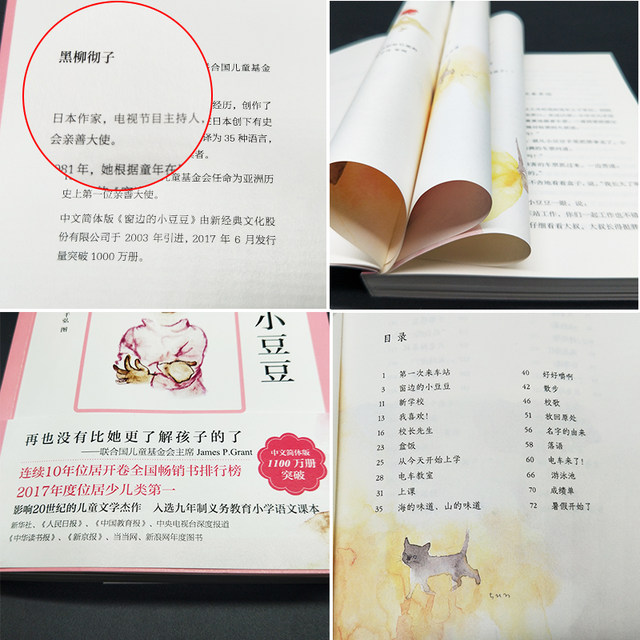 黑柳彻子
合国儿童基金
日本作家，电视节目主持人，
会亲善大使。
经历，创作了
日本创下有史
译为 35 种语言，
者。
981年，她根据童年在
儿童基金会任命为亚洲历
史上第一位亲善大使。
中文简体版《窗边的小豆豆》由新经典文化股
份有限公司于 2003 年引进，2017 年 6 月发行
量突破 1000 万册。
小豆豆
弘 图
再也没有比她更了解孩子的了
——联合国儿童基金会主席 James P.Grant
连续10年位居开卷全国畅销书排行榜
2017年度位居少儿类第一
中文简体版
1100万册
突破
影响20世纪的儿童文学杰作 入选九年制义务教育小学语文课本
新华社、《人民日报》、《中国教育报》、中央电视台深度报道
《中华读书报》、《新京报》、当当网、新浪网年度图书
目录
1 第一次来车站
3 窗边的小豆豆
11 新学校
13 我喜欢！
16 校长先生
23 盒饭
25 从今天开始上学
28 电车教室
31 上课
35 海的味道、山的味道
40 好好嚼啊
42 散步
46 校歌
51 放回原处
56 名字的由来
58 落语
60 电车来了！
66 游泳池
70 成绩单
72 暑假开始了